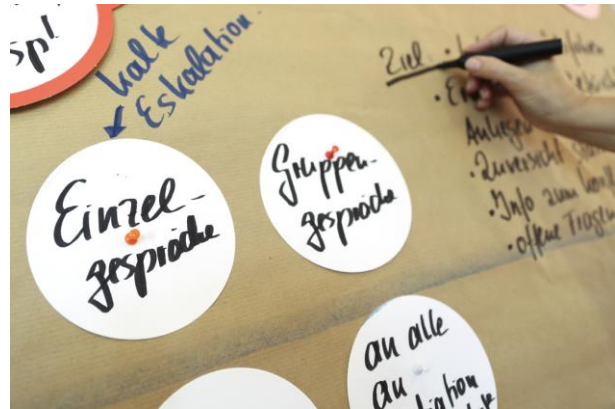 sp!
kalk
Eskalation
Einzel-
gespräche
Gruppen-
gespräche
Ziel:
Anliegen
• Zuversicht
• Info zum
• offene Frage
an alle
an